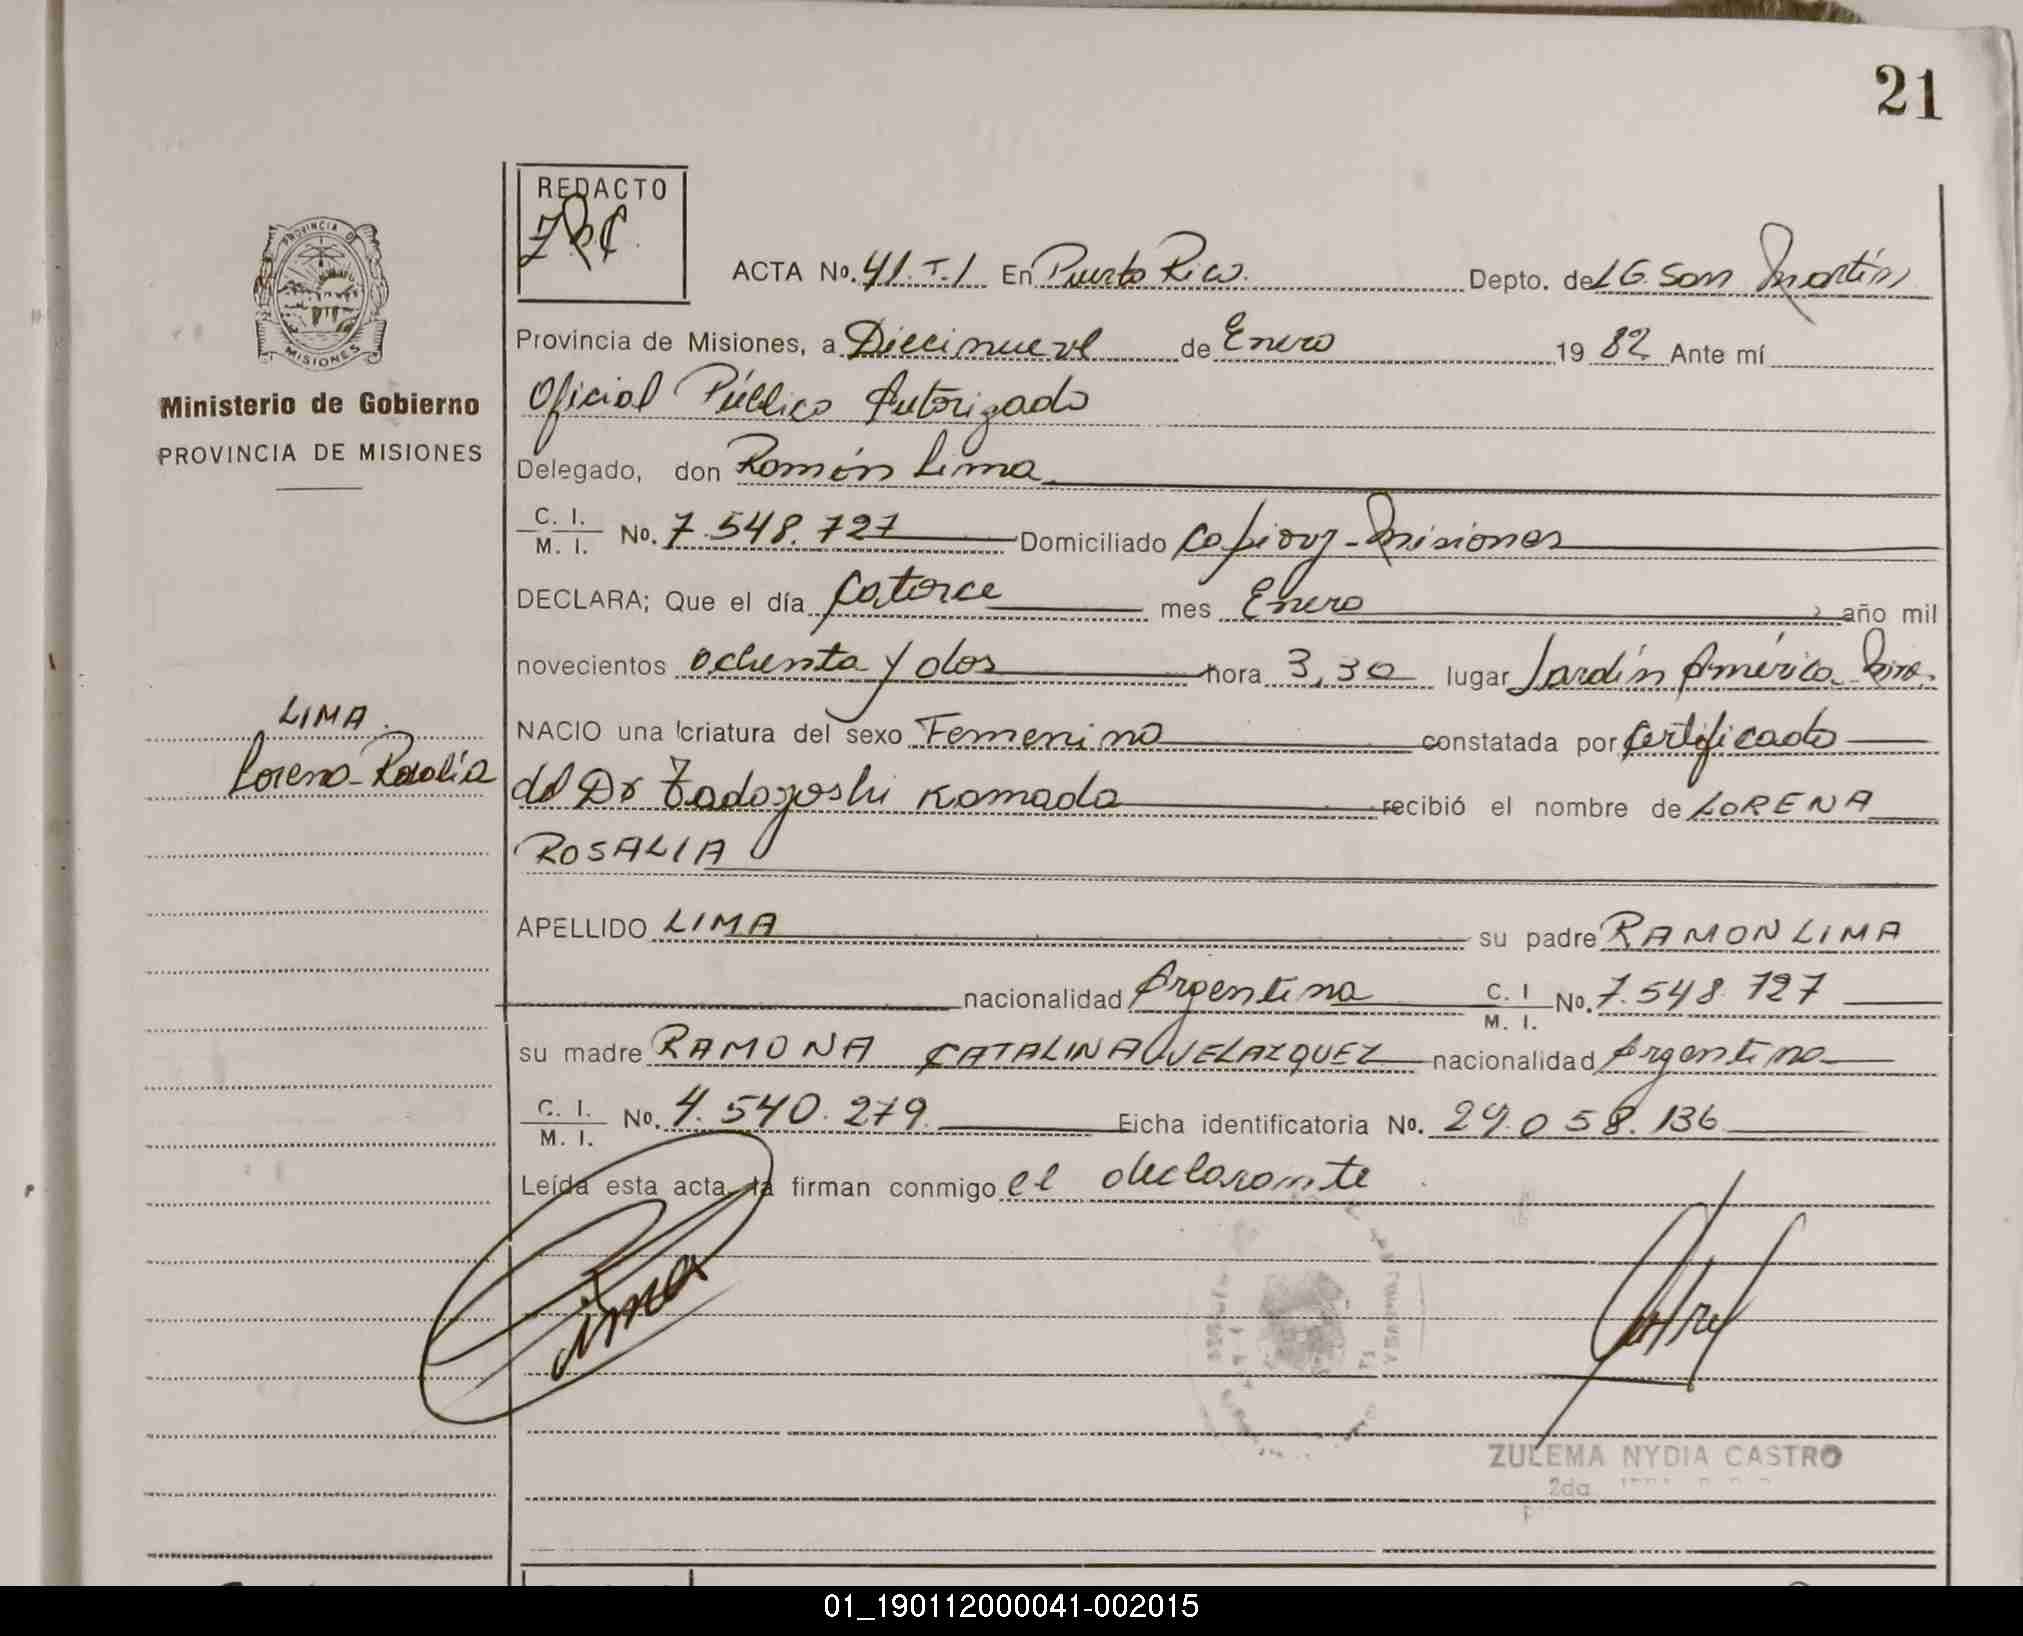 21
REDACTO
PROVINCIA DE
MISIONES
Ministerio de Gobierno
PROVINCIA DE MISIONES
ACTA No. 41. T. 1 En Puerto Rico. Depto. de L G. San Martín
Provincia de Misiones, a Diecinueve de Enero 19 82 Ante mí
Oficial Público Autorizado
Delegado, don Ramón Lima
C. I. / M. I. No. 7.548.727 Domiciliado Capiovy - Misiones
DECLARA; Que el día Catorce mes Enero año mil
novecientos ochenta y dos hora 3,30 lugar Jardín América
NACIO una criatura del sexo Femenino constatada por Certificado
del Dr Tadayoshi Kamada recibió el nombre de LORENA
ROSALIA
APELLIDO LIMA su padre RAMON LIMA
nacionalidad Argentina C. I / M. I. No. 7.548.727
su madre RAMONA CATALINA VELAZQUEZ nacionalidad Argentina
C. I. / M. I. No. 4.540.279. Ficha identificatoria No. 29.058.136
Leída esta acta, la firman conmigo el declarante
LIMA.
Lorena-Rosalía
Lima
Castro
ZULEMA NYDIA CASTRO
2da
01_190112000041-002015